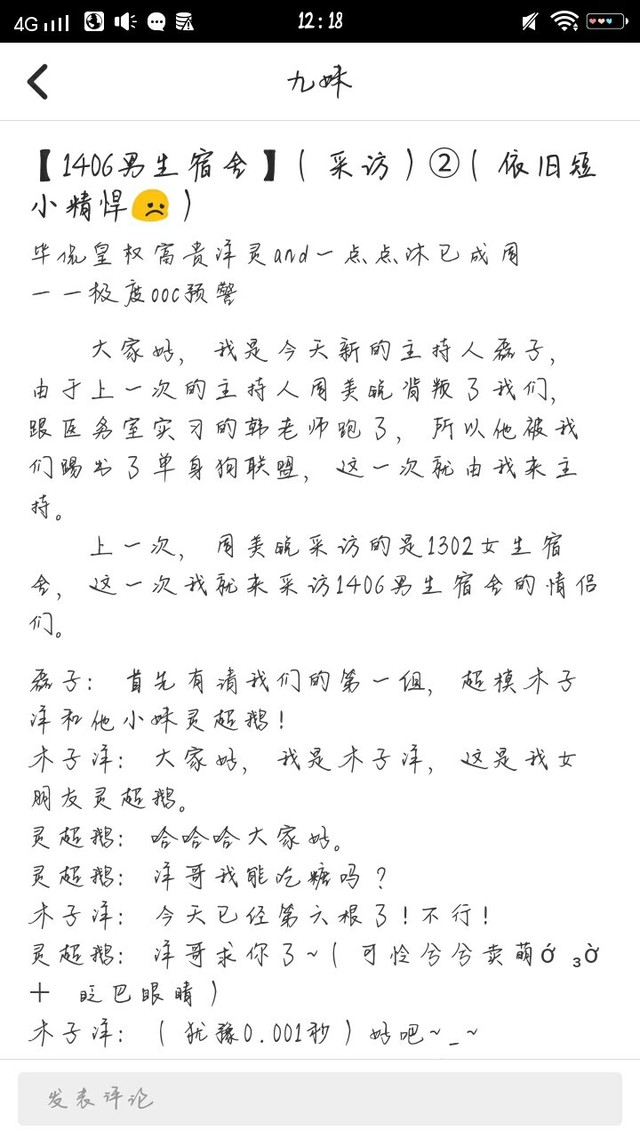 4G 12:18
九妹
【1406男生宿舍】(采访)②(依旧短
小精悍☹️)
毕侃皇权富贵洋灵and一点点沐已成周
——极度ooc预警
大家好，我是今天新的主持人磊子，
由于上一次的主持人周美皖背叛了我们，
跟医务室实习的韩老师跑了，所以他被我
们踢出了单身狗联盟，这一次就由我来主
持。
上一次，周美皖采访的是1302女生宿
舍，这一次我就来采访1406男生宿舍的情侣
们。
磊子：首先有请我们的第一组，超模木子
洋和他小妹灵超鹅！
木子洋：大家好，我是木子洋，这是我女
朋友灵超鹅。
灵超鹅：哈哈哈大家好。
灵超鹅：洋哥我能吃糖吗？
木子洋：今天已经第六根了！不行！
灵超鹅：洋哥求你了~(可怜兮兮卖萌σ́ ₃σ̀
＋ 眨巴眼睛)
木子洋：(犹豫0.001秒)好吧~_~
发表评论